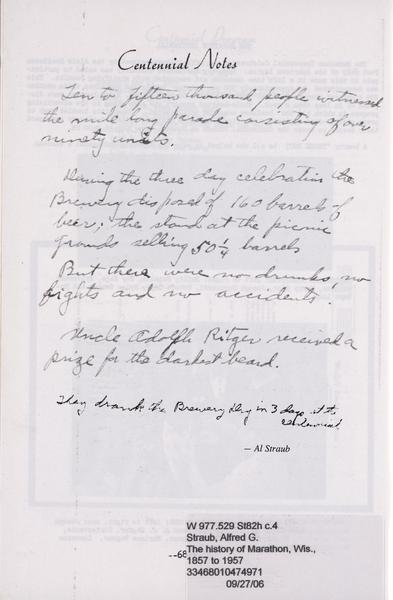 Centennial Notes
Ten to fifteen thousand people witnessed
the mile long parade consisting of over
ninety units.
During the three day celebration the
Brewery disposed of 160 barrels of
beer; the stand at the picnic
grounds selling 50 1/4 barrels
But there were no drunks, no
fights and no accidents.
Uncle Adolph Ritger received a
prize for the darkest beard.
They drank the Brewery dry in 3 days at the
centennial.
— Al Straub
--68
W 977.529 St82h c.4
Straub, Alfred G.
The history of Marathon, Wis.,
1857 to 1957
33468010474971
09/27/06